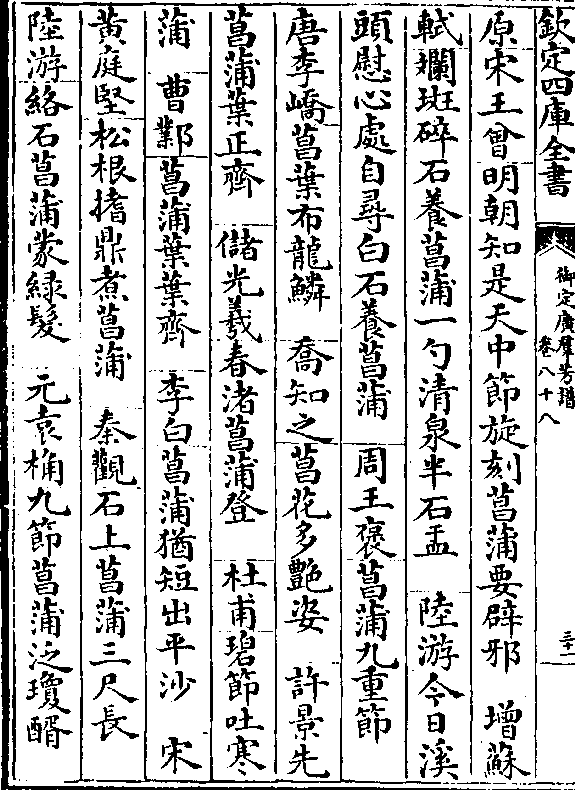 欽定四庫全書
御定廣羣芳譜
卷八十八
三十一
原宋王曾明朝知是天中節旋刻菖蒲要辟邪　增蘇
軾斕斑碎石養菖蒲一勺清泉半石盂　陸游今日溪
頭慰心處自尋白石養菖蒲　周王褒菖蒲九重節
唐李嶠菖葉布龍鱗　喬知之菖花多艷姿　許景先
菖蒲葉正齊　儲光羲春渚菖蒲登　杜甫碧節吐寒
蒲　曹鄴菖蒲葉葉齊　李白菖蒲猶短出平沙　宋
黄庭堅松根搘鼎煮菖蒲　秦觀石上菖蒲三尺長
陸游絡石菖蒲蒙緑髮　元袁桷九節菖蒲泛瓊醑